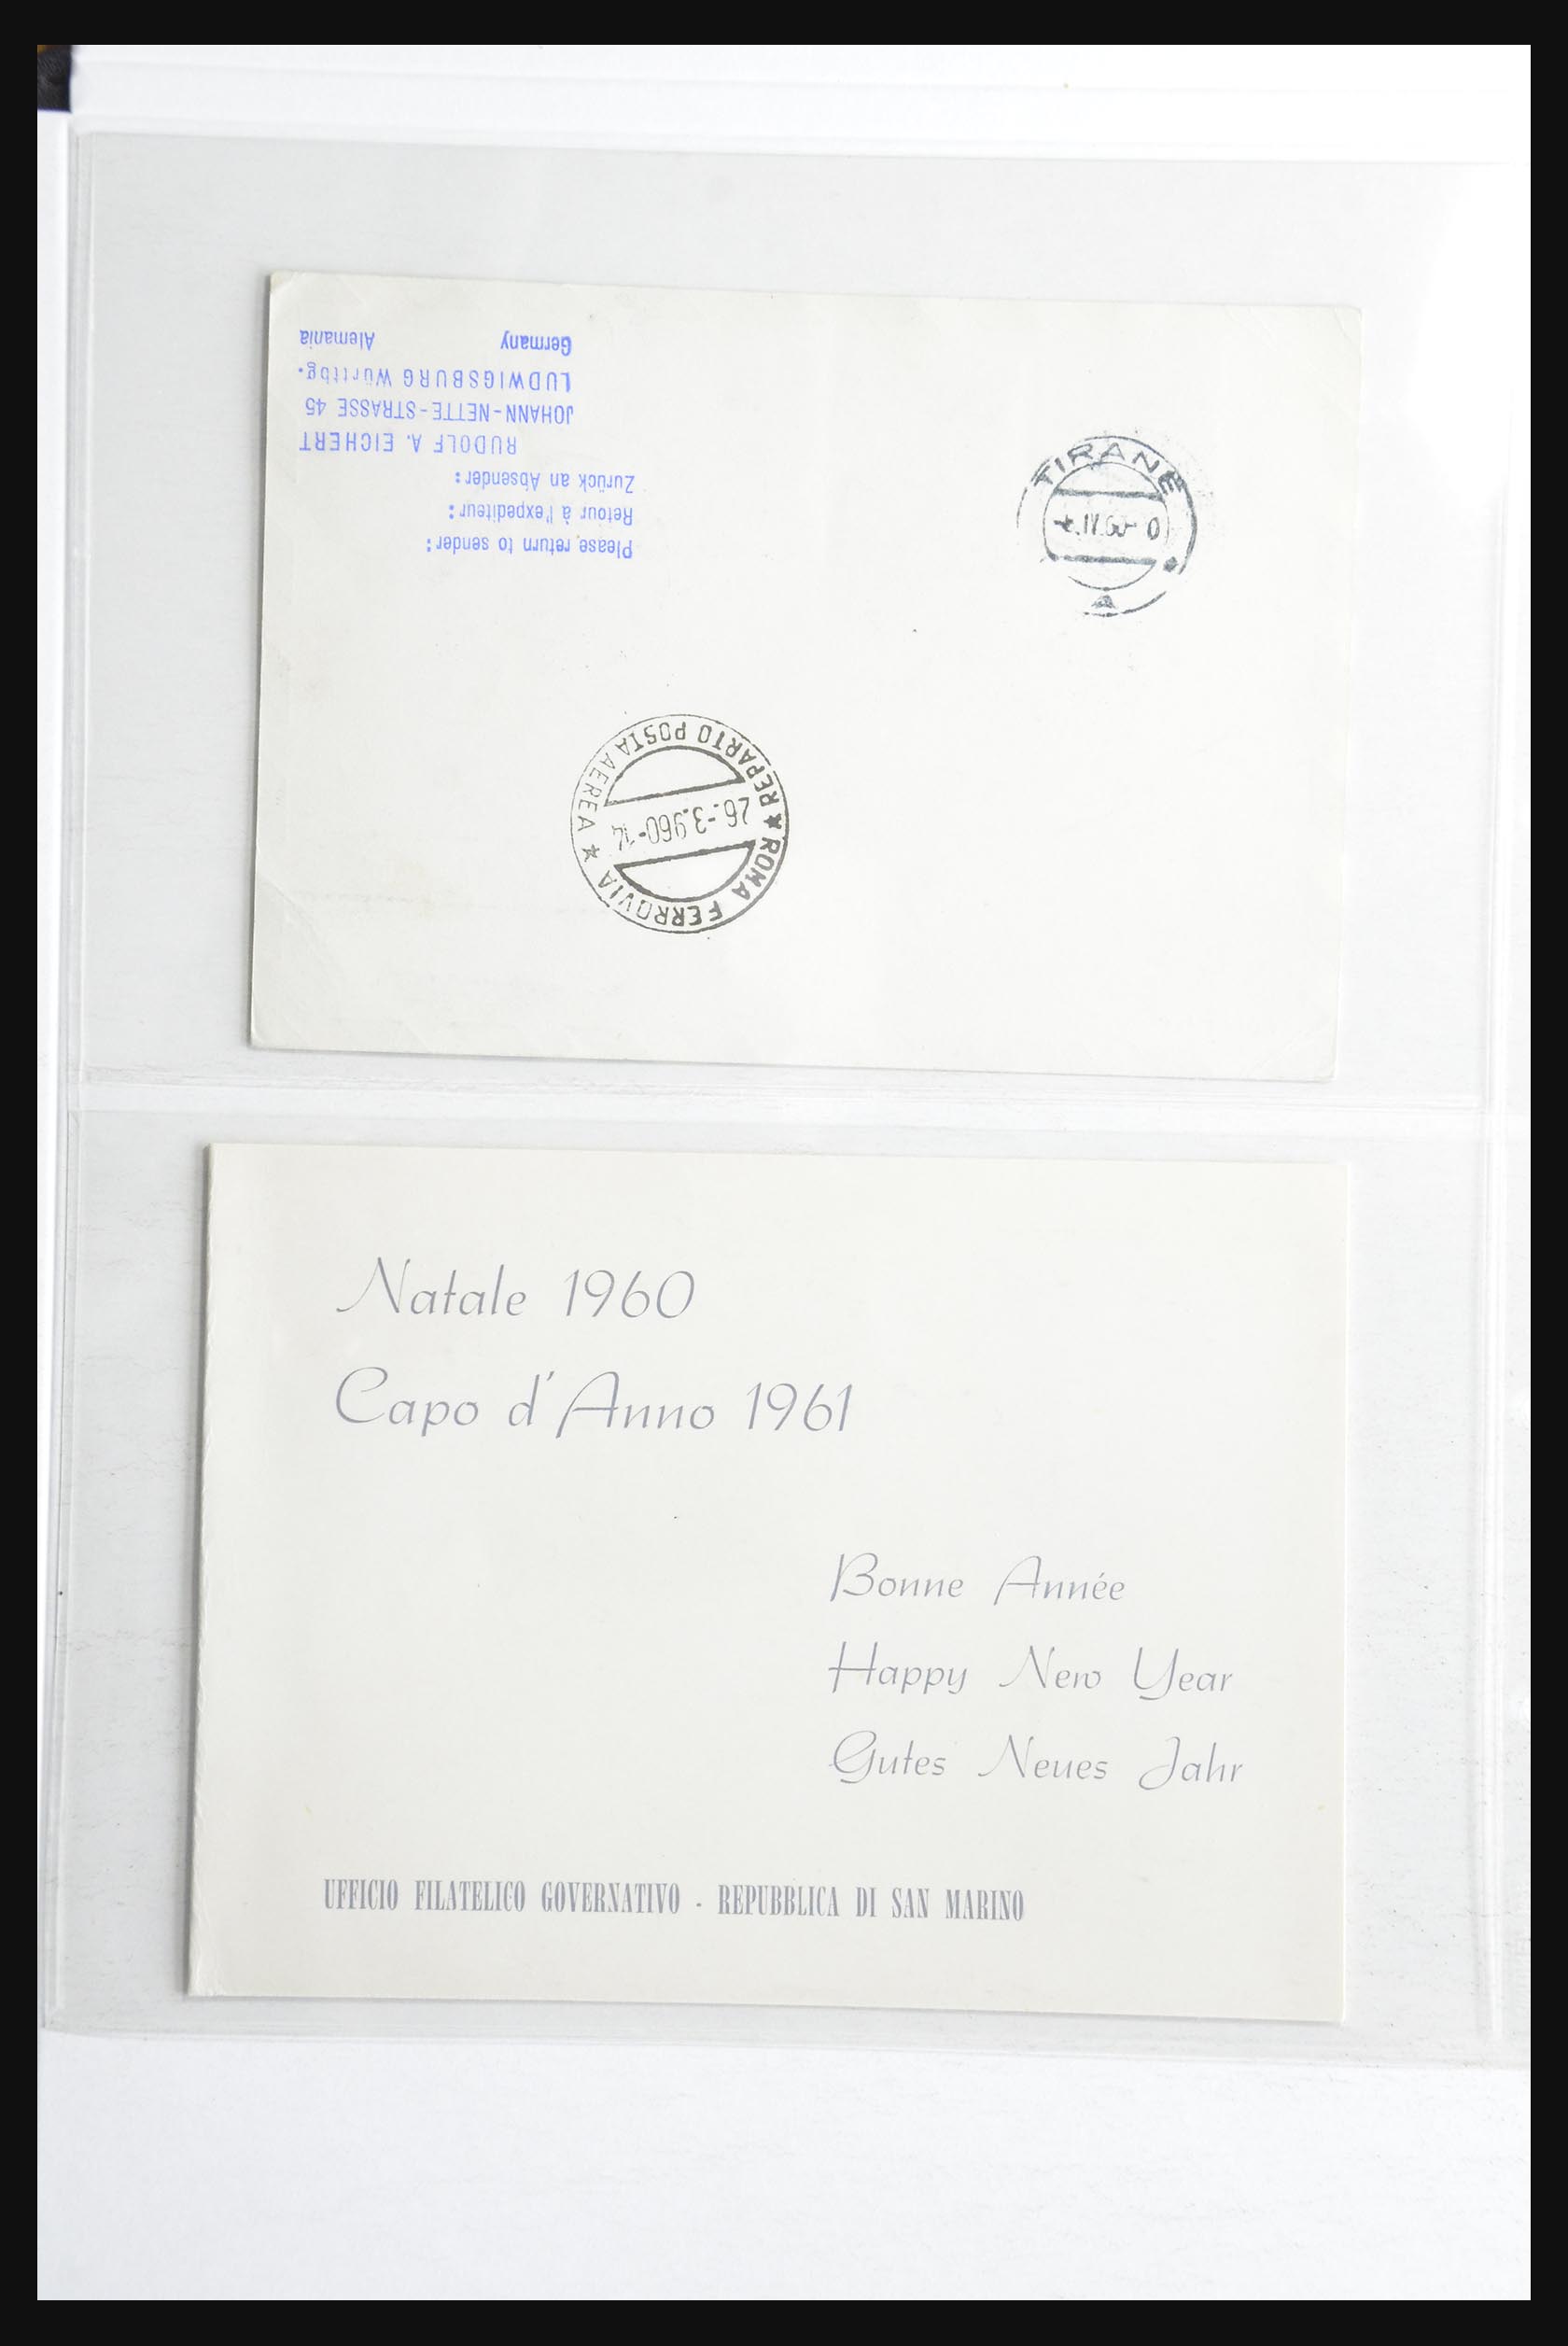 Please return to sender:
Retour à l'expediteur:
Zurück an Absender:
RUDOLF A. EICHERT
JOHANN-NETTE-STRASSE 45
LUDWIGSBURG Württbg.
Germany Alemania
TIRANE
A
REPARTO POSTA AEREA
26.-3.960-14
ROMA FERROVIA
Natale 1960
Capo d'Anno 1961
Bonne Année
Happy New Year
Gutes Neues Jahr
UFFICIO FILATELICO GOVERNATIVO - REPUBBLICA DI SAN MARINO